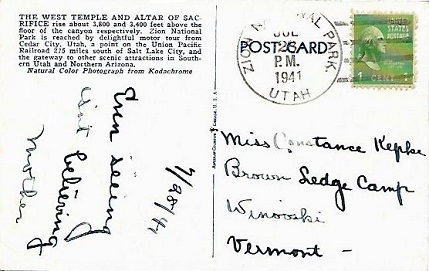 THE WEST TEMPLE AND ALTAR OF SAC-
RIFICE rise about 3,800 and 3,400 feet above the
floor of the canyon respectively. Zion National
Park is reached by delightful motor tour from
Cedar City, Utah, a point on the Union Pacific
Railroad 275 miles south of Salt Lake City, and
the gateway to other scenic attractions in South-
ern Utah and Northern Arizona.
Natural Color Photograph from Kodachrome
7/28/41
Even seeing
isn't believing
Mother
ZION NATIONAL PARK,
JUL
28
P.M.
1941
UTAH
POST CARD
1 CENT 1
Miss Constance Kepke
Brown Ledge Camp
Winooski
Vermont -